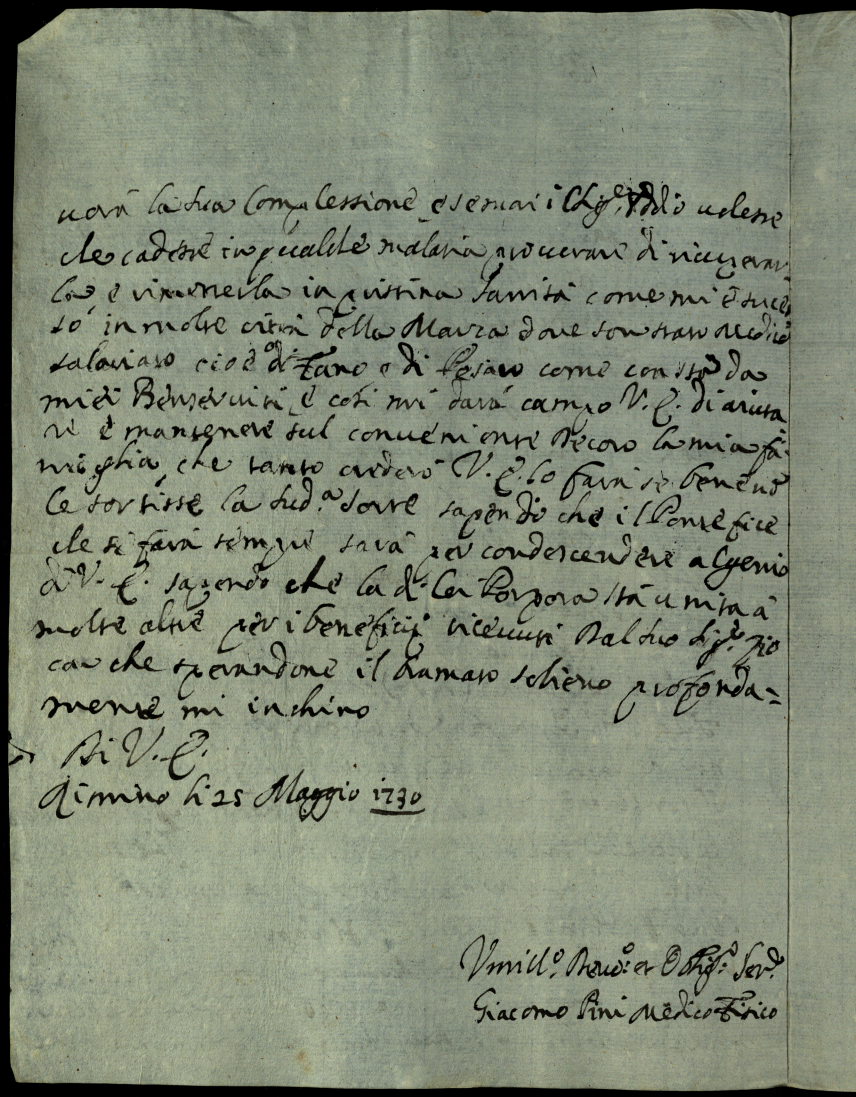 uerà la sua Complessione, e se mai il Sig.re Iddio uolesse
che cadesse in qualche malatia procurare di ricuperar
la e rimeterla in pristina Sanità come mi è suces
so in molte città della Marca doue son stato Medico
salariato cioè di Fano e di Pesaro come consta da
miei Benseruiti, e così mi darà campo V. E. di aiuta
re e mantenere sul conueniente decoro la mia fa
miglia, che tanto crederò V. E. lo farà se bene no
le sortisse la sud.a sorte sapendo che il Pontefice
che si farà sempre sarà per condescendere al genio
di V. E. sapendo che la di lei Porpora stà unita à
molte altre per i beneficij riceuuti dal suo Sig.re Zio
che sperandone il bramato solieuo profonda=
mente mi inchino
Di V. E.
Rimino li 25 Maggio 1730
Vmil.o Deuo.o et Oblig.o Ser.e
Giacomo Pini Medico Fisico